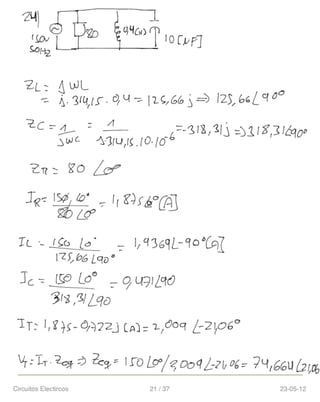 24)
150v
50Hz
80
0,4(H)
10[uF]
ZL = jWL
= j.314,15.0,4 = 125,66j => 125,66∠90°
ZC = 1/jWC = 1/j314,15.10.10^-6 = -318,31j => 318,31∠90°
ZR = 80 ∠0°
IR = 150∠0°/80∠0° = 1,875∠0°[A]
IL = 150∠0°/125,66∠90° = 1,9369∠-90°[A]
IC = 150∠0°/318,31∠90 = 0,471∠90
IT = 1,875-0,722j(A) = 2,009∠-21,06°
VT = IT.Zeq => Zeq = 150∠0°/2,009∠-21,06 = 74,664∠21,06
Circuitos Electircos 21 / 37 23-05-12